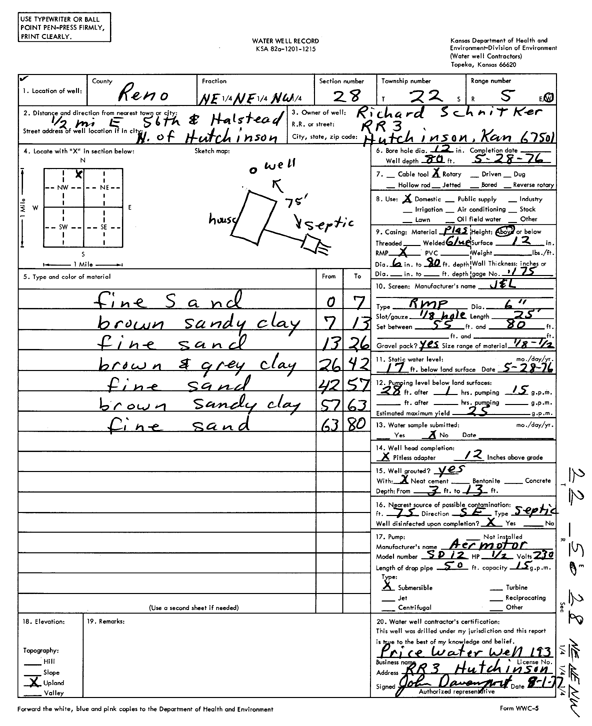 USE TYPEWRITER OR BALL
POINT PEN-PRESS FIRMLY,
PRINT CLEARLY.
WATER WELL RECORD
KSA 82a-1201-1215
Kansas Department of Health and
Environment-Division of Environment
(Water well Contractors)
Topeka, Kansas 66620
1. Location of well: County Reno Fraction NE 1/4 NE 1/4 NW 1/4 Section number 28 Township number T 22 S Range number R 5 E/W
2. Distance and direction from nearest town or city: 1/2 mi E 56th & Halstead
Street address of well location if in city: N. of Hutchinson
3. Owner of well: Richard Schnitker
R.R. or street: RR3
City, state, zip code: Hutchinson, Kan 67501
4. Locate with "X" in section below:
Sketch map:
N
X
NW NE
W E
SW SE
S
1 Mile
1 Mile
o well
75'
house
septic
6. Bore hole dia. 12 in. Completion date
Well depth 80 ft. 5-28-76
7. Cable tool X Rotary Driven Dug
Hollow rod Jetted Bored Reverse rotary
8. Use: X Domestic Public supply Industry
Irrigation Air conditioning Stock
Lawn Oil field water Other
9. Casing: Material Plas Height: Above or below
Threaded Welded Glue Surface 12 in.
RMP X PVC Weight lbs./ft.
Dia. 6 in. to 80 ft. depth Wall Thickness: inches or
Dia. in. to ft. depth gage No. .175
5. Type and color of material From To
fine sand 0 7
brown sandy clay 7 13
fine sand 13 26
brown & grey clay 26 42
fine sand 42 57
brown sandy clay 57 63
fine sand 63 80
(Use a second sheet if needed)
10. Screen: Manufacturer's name J&L
Type RMP Dia. 6"
Slot/gauze 1/8 hole Length 25'
Set between 55 ft. and 80 ft.
ft. and ft.
Gravel pack? yes Size range of material 1/8-1/2
11. Static water level: mo./day/yr.
17 ft. below land surface Date 5-28-76
12. Pumping level below land surfaces:
28 ft. after 1 hrs. pumping 15 g.p.m.
ft. after hrs. pumping g.p.m.
Estimated maximum yield 25 g.p.m.
13. Water sample submitted: mo./day/yr.
Yes X No Date
14. Well head completion:
X Pitless adapter 12 Inches above grade
15. Well grouted? yes
With: X Neat cement Bentonite Concrete
Depth: From 3 ft. to 13 ft.
16. Nearest source of possible contamination:
ft. 75 Direction SE Type septic
Well disinfected upon completion? X Yes No
17. Pump: Not installed
Manufacturer's name Aermotor
Model number SD12 HP 1/2 Volts 230
Length of drop pipe 50 ft. capacity 15 g.p.m.
Type:
X Submersible Turbine
Jet Reciprocating
Centrifugal Other
18. Elevation:
Topography:
Hill
Slope
X Upland
Valley
19. Remarks:
20. Water well contractor's certification:
This well was drilled under my jurisdiction and this report
is true to the best of my knowledge and belief.
Price Water Well 193
Business name License No.
Address RR3 Hutchinson
Signed John Davenport Date 8-1-77
Authorized representative
Forward the white, blue and pink copies to the Department of Health and Environment
Form WWC-5
T 22 R 5 E Sec 28 1/4 1/4 1/4 NE NE NW